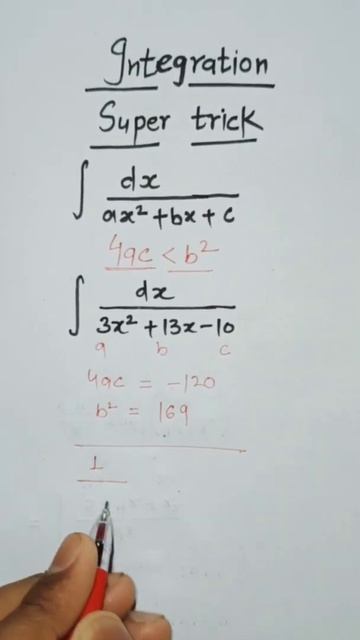 Integration
Super trick
∫ dx / ax² + bx + c
4ac < b²
∫ dx / 3x² + 13x - 10
a b c
4ac = -120
b² = 169
1